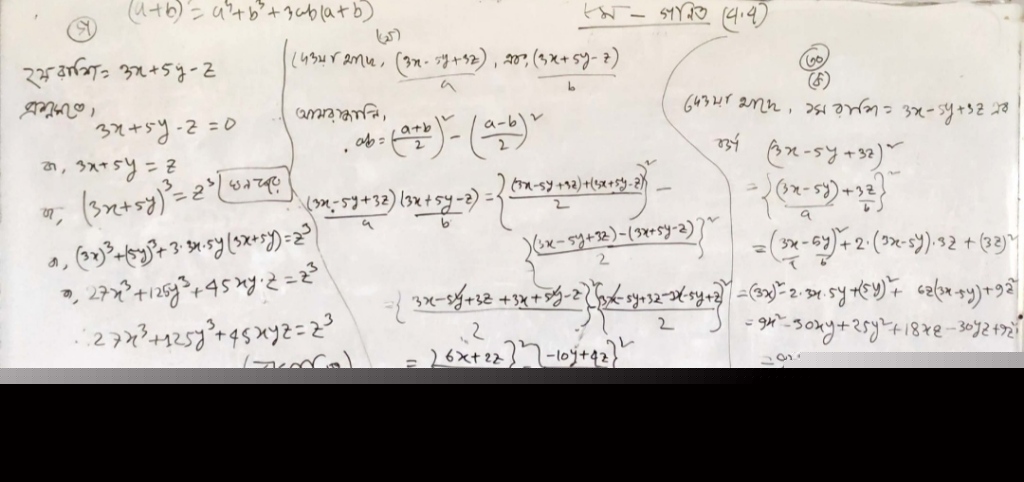 (a+b)³ = a³+b³+3ab(a+b)
৮ম – গণিত (4.4)
(গ)
২য় রাশি = 3x+5y-z
প্রশ্নমতে,
3x+5y-z=0
বা, 3x+5y = z
বা, (3x+5y)³ = z³
বা, (3x)³+(5y)³+3·3x·5y(3x+5y)=z³
বা, 27x³+125y³+45xy·z=z³
∴ 27x³+125y³+45xyz=z³
(খ)
দেওয়া আছে, (3x-5y+3z), এবং (3x+5y-z)
a b
আমরা জানি,
ab = (a+b/2)² - (a-b/2)²
(3x-5y+3z)(3x+5y-z) = {(3x-5y+3z)+(3x+5y-z)/2}² –
a b
{(3x-5y+3z)-(3x+5y-z)/2}²
= {3x-5y+3z+3x+5y-z/2}² - {3x-5y+3z-3x-5y+z/2}²
= {6x+2z}² - {-10y+4z}²
(ক)
দেওয়া আছে, ১ম রাশি = 3x-5y+3z এর
বর্গ (3x-5y+3z)²
= {(3x-5y)+3z}²
a b
= (3x-5y)²+2·(3x-5y)·3z+(3z)²
a b
= (3x)²-2·3x·5y+(5y)²+6z(3x-5y)+9z²
= 9x²-30xy+25y²+18xz-30yz+9z²